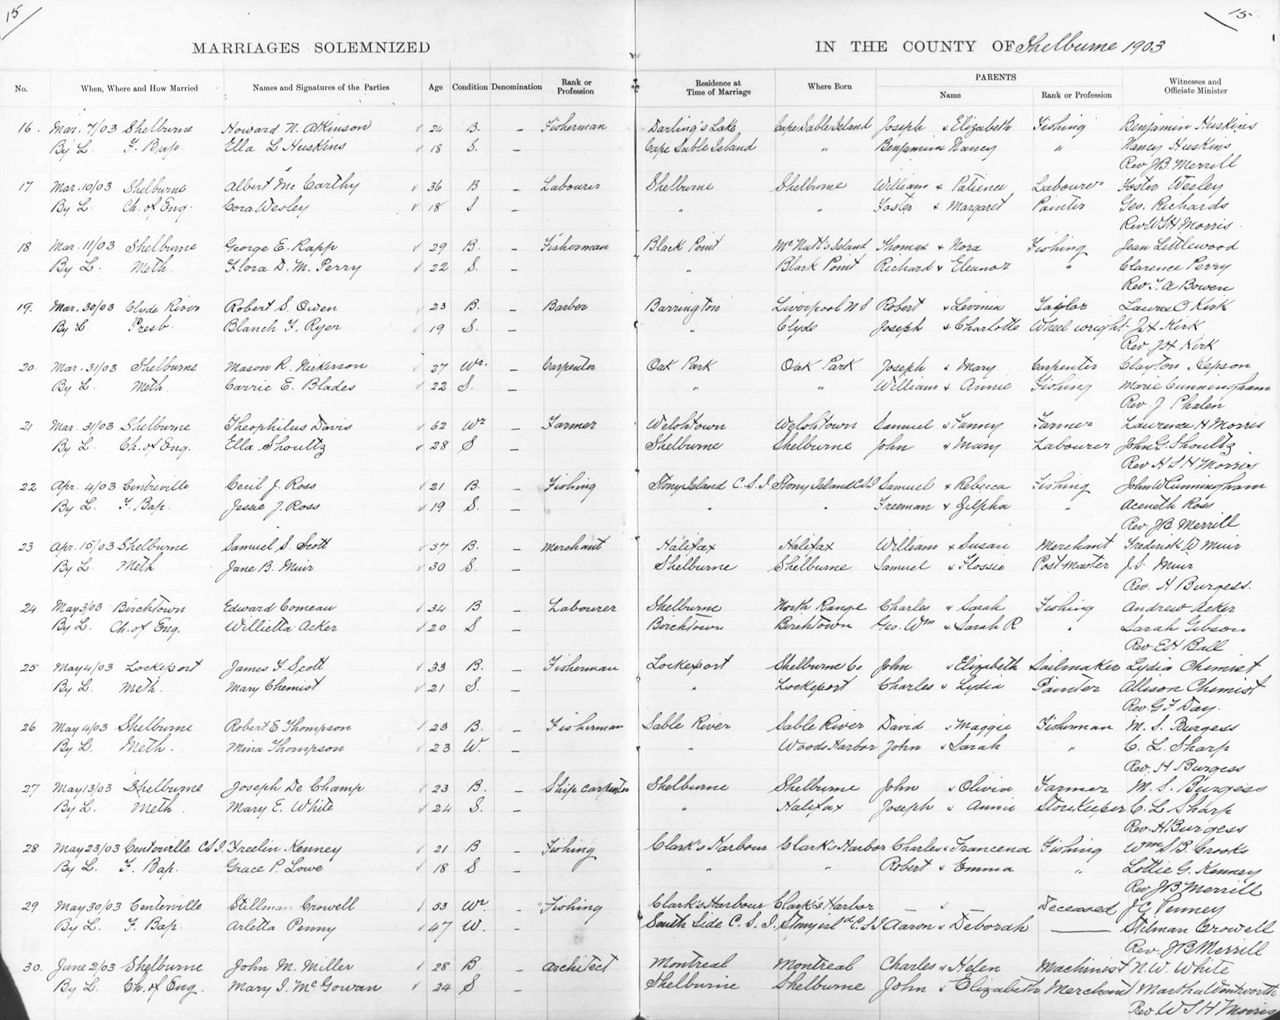 15 15
MARRIAGES SOLEMNIZED IN THE COUNTY OF Shelburne 1903
No. When, Where and How Married Names and Signatures of the Parties Age Condition Denomination Rank or Profession Residence at Time of Marriage Where Born PARENTS Name Rank or Profession Witnesses and Officiate Minister
16. Mar. 7/03 Shelburne Howard N. Atkinson 24 B. – Fisherman Darling's Lake Cape Sable Island Joseph & Elizabeth Fishing Benjamin Huskins
By L F. Bap. Ella L Huskins 18 S. – Cape Sable Island " Benjamin & Nancy " Nancy Huskins
Rev JB. Merrill
17 Mar. 10/03 Shelburne Albert McCarthy 36 B – Labourer Shelburne Shelburne William & Patience Labourer Foster Wesley
By L. Ch. of Eng. Cora Wesley 18 S – " " Foster & Margaret Painter Geo. Richards
Rev. W.S.H. Morris.
18 Mar. 11/03 Shelburne George E. Rapp 29 B. – Fisherman Black Point McNutt's Island Thomas & Nora Fishing Jean Littlewood
By L. Meth. Flora D. M. Perry 22 S. – " Black Point Richard & Eleanor " Clarence Perry
Rev. T. A Bowen
19. Mar. 30/03 Clyde River Robert S. Owen 23 B. – Barber Barrington Liverpool NS Robert & Levinia Tailor Kirk
By L Presb. Blanch F. Ryer 19 S. – " Clyde Joseph & Charlotte Wheelwright Kirk
Rev Kirk
20 Mar. 31/03 Shelburne Mason R. Nickerson 27 Wr. – Carpenter Oak Park Oak Park Joseph & Mary Carpenter Clayton Hipson
By L. Meth. Carrie E. Blades 22 S. – " " William & Annie Fishing Marie Cunningham
Rev. J Phalen
21 Mar. 31/03 Shelburne Theophilus Davis 62 Wr – Farmer Welshtown Welshtown Samuel & Fanny Farmer Lawrence H Morris
By L. Ch. of Eng. Ella Shoultz 28 S – Shelburne Shelburne John & Mary Labourer John G. Shoultz
Rev Morris
22 Apr. 4/03 Centreville Cecil J. Ross 21 B. – Fishing Stony Island C.S.I. Stony Island C.S.I. Samuel & Rebecca Fishing John W Cunningham
By L. F. Bap. Jessie J. Ross 19 S. – " " Freeman & Zilpha " Aceneth Ross
Rev JB Merrill
23 Apr. 15/03 Shelburne Samuel S. Scott 37 B. – Merchant Halifax Halifax William & Susan Merchant Frederick W Muir
By L Meth Jane B. Muir 30 S. – Shelburne Shelburne Samuel & Flossie Postmaster J.S. Muir
Rev. H Burgess.
24 May 3/03 Birchtown Edward Comeau 34 B – Labourer Shelburne North Range Charles & Sarah Fishing Andrew Acker
By L. Ch. of Eng. Willietta Acker 20 S – Birchtown Birchtown Geo. Wm & Sarah R " Sarah Gibson
Rev EH Ball
25 May 4/03 Lockeport James F. Scott 33 B. – Fisherman Lockeport Shelburne Co John & Elizabeth Sailmaker Lydia Chemist
By L. Meth. Mary Chemist 21 S. – " Lockeport Charles & Lydia Painter Allison Chemist
Rev G F Day.
26 May 4/03 Shelburne Robert E Thompson 23 B. – Fisherman Sable River Sable River David & Maggie Fisherman M. S. Burgess
By L. Meth. Mina Thompson 23 W. – " Woods Harbor John & Sarah " C. L. Sharp
Rev. H Burgess
27 May 13/03 Shelburne Joseph De Champ 23 B. – Ship carpenter Shelburne Shelburne John & Olivia Farmer M. S. Burgess
By L. Meth. Mary E. White 24 S. – " Halifax Joseph & Annie Storekeeper C. L. Sharp
Rev. H Burgess
28 May 23/03 Centerville C.S.I. Freelin Kenney 21 B – Fishing Clark's Harbour Clark's Harbor Charles & Francena Fishing Wm S B. Crooks
By L. F. Bap. Grace P. Lowe 18 S – " " Robert & Emma " Lottie G. Kenney
Rev JB Merrill
29 May 30/03 Centerville Stillman Crowell 53 Wr – Fishing Clark's Harbour Clark's Harbor – & – Deceased J E Penney
By L. F. Bap. Arletta Penny 47 W. – South Side C. S. I. Stony isld C.S.I Aaron & Deborah — Stilman Crowell
Rev. JB Merrill
30. June 2/03 Shelburne John M. Miller 28 B – Architect Montreal Montreal Charles & Helen Machinist N. W. White
By L. Ch. of Eng. Mary I. McGowan 24 S – Shelburne Shelburne John & Elizabeth Merchant Martha Wentworth
Rev. W S H Morris